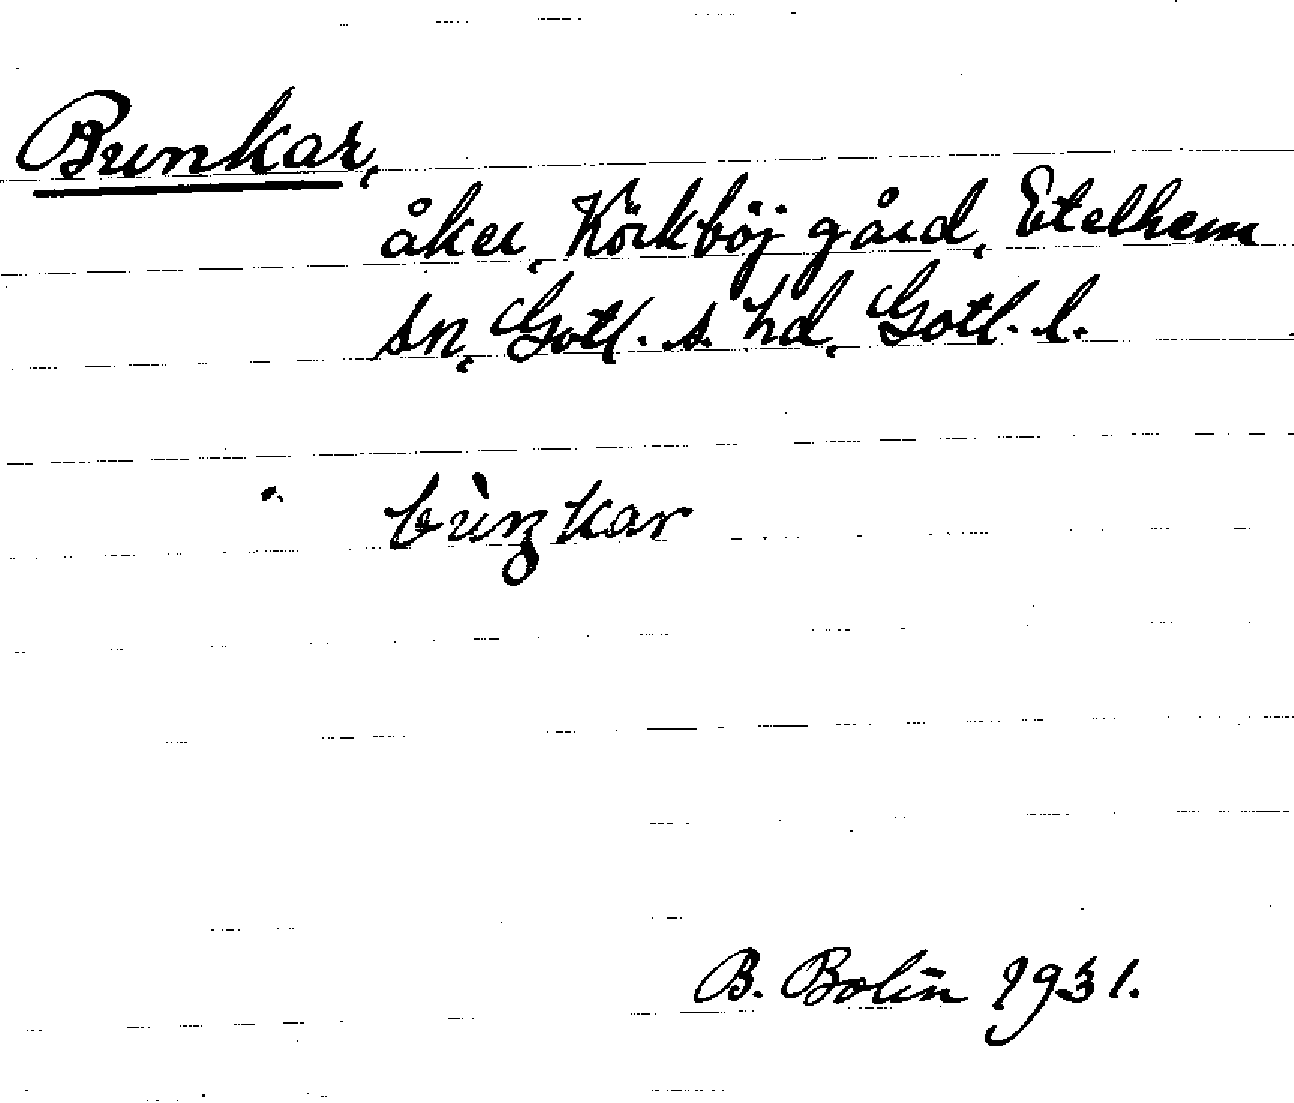 Bunkar,
åker, Körkböj gård, Etelhem
sn, Gotl. s. hd, Gotl. l.
bùŋkar
B. Bolin 1931.